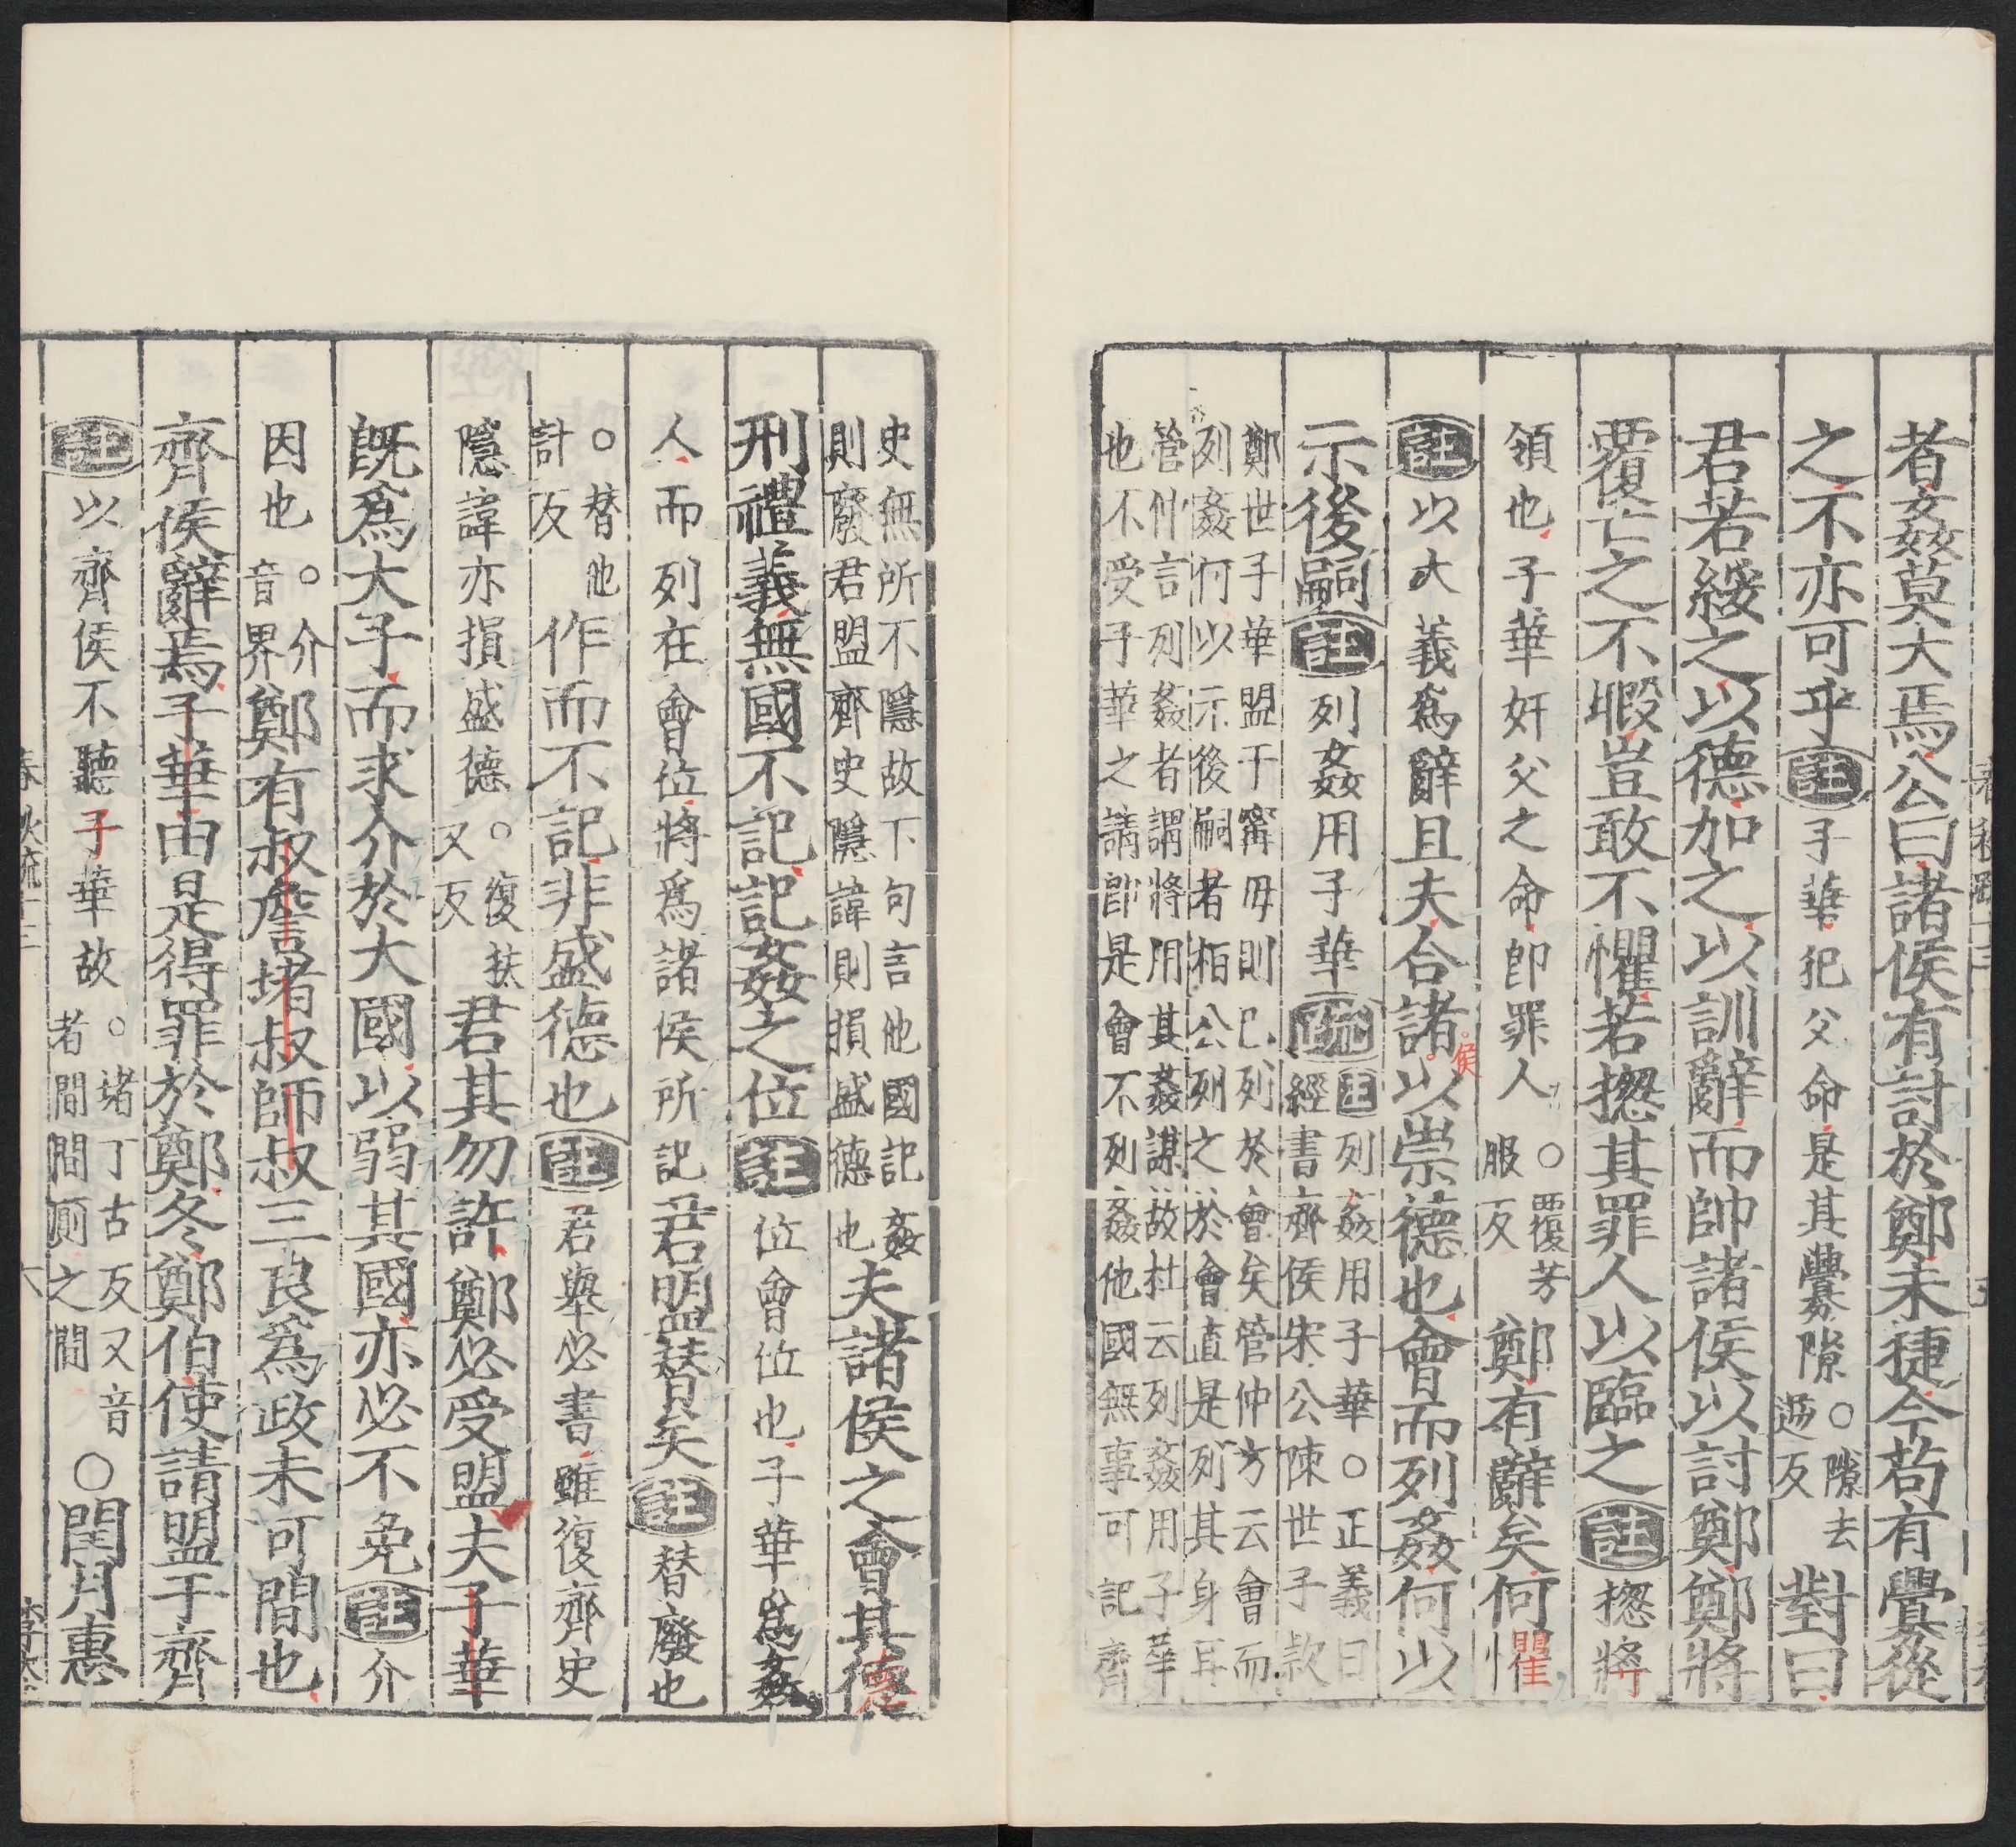 者姦莫大焉公曰諸侯有討於鄭未捷今苟有釁從
之不亦可乎註子華犯父命是其釁隙○隙去逆反對曰
君若綏之以德加之以訓辭而帥諸侯以討鄭鄭將
覆亡之不暇豈敢不懼若揔其罪人以臨之註揔將
領也子華奸父之命即罪人○覆芳服反鄭有辭矣何懼
註以大義爲辭且夫合諸侯以崇德也會而列姦何以
示後嗣註列姦用子華疏註列姦用子華○正義曰
經書齊侯宋公陳世子款
鄭世子華盟于甯毋則已列於會矣管仲方云會而
列姦何以示後嗣者桓公列之於會直是列其身耳
管仲言列姦者謂將用其姦謀故杜云列姦用子華
也不受子華之請即是會不列姦他國無事可記齊
史無所不隱故下句言他國記姦
則廢君盟齊史隱諱則損盛德也夫諸侯之會其德
刑禮義無國不記記姦之位註位會位也子華爲姦
人而列在會位將爲諸侯所記君盟替矣註替廢也
○替他計反作而不記非盛德也註君舉必書雖復齊史
隱諱亦損盛德○復扶又反君其勿許鄭必受盟夫子華
既爲大子而求介於大國以弱其國亦必不免註介
因也○介音界鄭有叔詹堵叔師叔三良爲政未可間也
齊侯辭焉子華由是得罪於鄭冬鄭伯使請盟于齊
註以齊侯不聽子華故○堵丁古反又音者間間厠之間○閏月惠